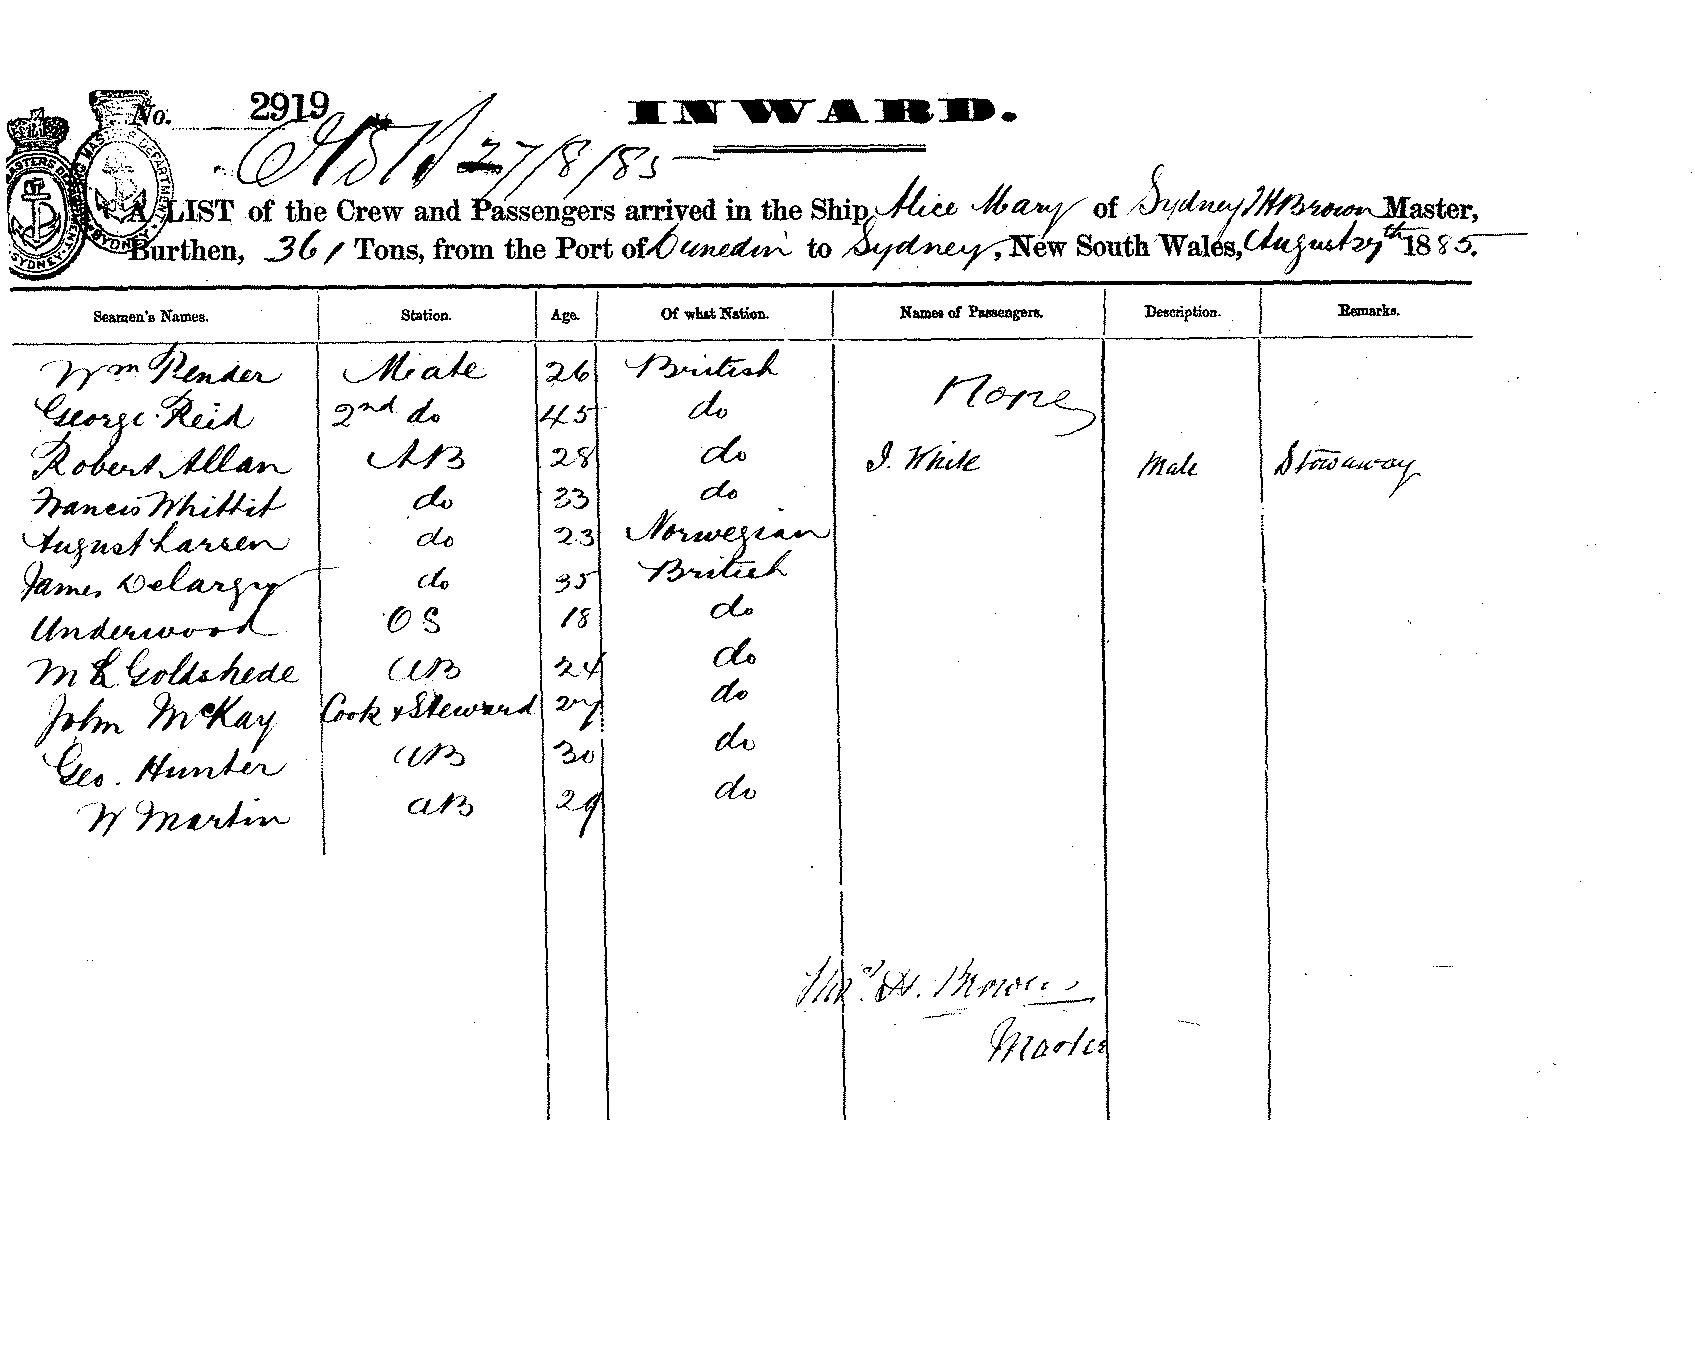 No. 2919
INWARD.
27/8/85
A LIST of the Crew and Passengers arrived in the Ship, Alice Mary of Sydney T H Brown Master,
Burthen, 361 Tons, from the Port of Dunedin to Sydney, New South Wales, August 27th 1885.
Seamen's Names. Station. Age. Of what Nation. Names of Passengers. Description. Remarks.
Wm Render Mate 26 British None
George Reid 2nd do 45 do
Robert Allan AB 28 do J. White Male Stowaway
Francis Whittit do 33 do
August Larsen do 23 Norwegian
James Delargy do 35 British
Underwood OS 18 do
M L Goldshede AB 24 do
John McKay Cook & Steward 27 do
Geo. Hunter AB 30 do
W Martin AB 29 do
Thos. H. Brown
Master